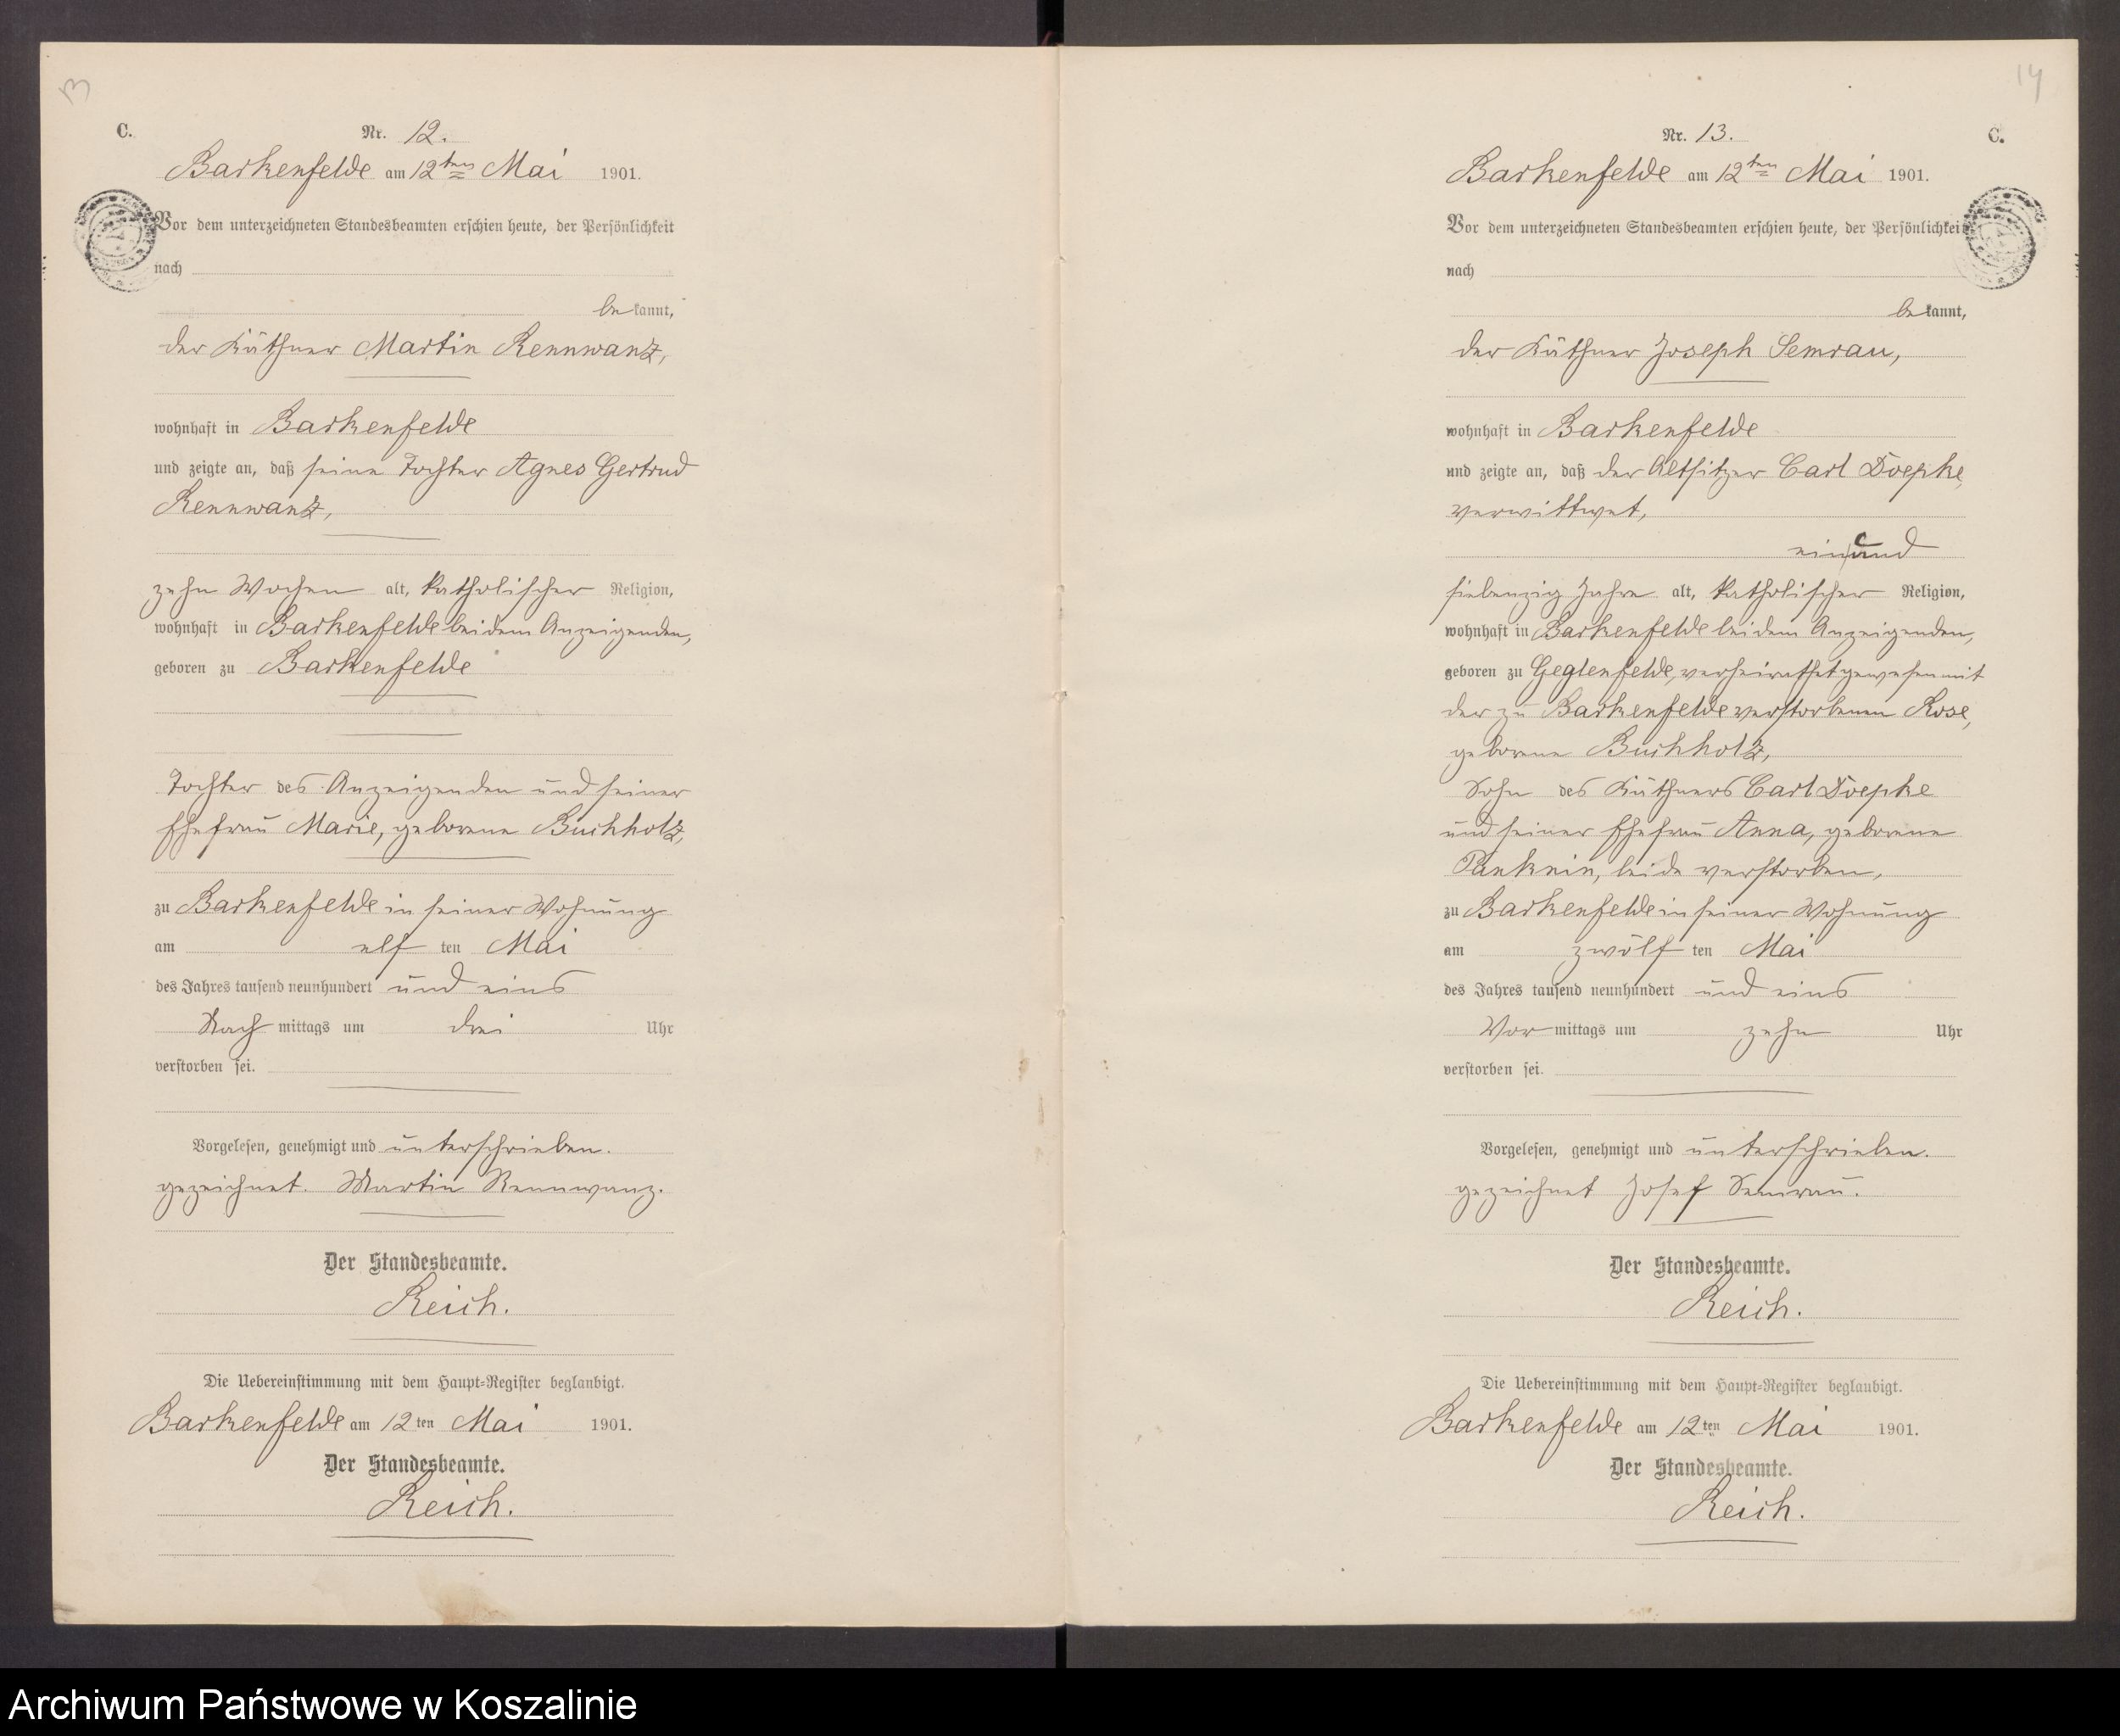 13
C.
Nr. 12.
Barkenfelde am 12ten Mai 1901.
Vor dem unterzeichneten Standesbeamten erschien heute, der Persönlichkeit
nach
bekannt,
der Käthner Martin Rennwanz,
wohnhaft in Barkenfelde
und zeigte an, daß seine Tochter Agnes Gertrud
Rennwanz,
zehn Wochen alt, katholischer Religion,
wohnhaft in Barkenfelde bei dem Anzeigenden,
geboren zu Barkenfelde
Tochter des Anzeigenden und seiner
Ehefrau Marie, geborene Buchholz,
zu Barkenfelde in seiner Wohnung
am elf ten Mai
des Jahres tausend neunhundert und eins
Nach mittags um drei Uhr
verstorben sei.
Vorgelesen, genehmigt und unterschrieben.
gezeichnet. Martin Rennwanz.
Der Standesbeamte.
Reich.
Die Uebereinstimmung mit dem Haupt-Register beglaubigt.
Barkenfelde am 12 ten Mai 1901.
Der Standesbeamte.
Reich.
14
Nr. 13. C.
Barkenfelde am 12ten Mai 1901.
Vor dem unterzeichneten Standesbeamten erschien heute, der Persönlichkeit
nach
bekannt,
der Käthner Joseph Semrau,
wohnhaft in Barkenfelde
und zeigte an, daß der Altsitzer Carl Doepke,
verwittwet,
ein und
siebenzig Jahre alt, katholischer Religion,
wohnhaft in Barkenfelde bei dem Anzeigenden,
geboren zu Geglenfelde, verheirathet gewesen mit
der zu Barkenfelde verstorbenen Rose,
geborene Buchholz,
Sohn des Käthners Carl Doepke
und seiner Ehefrau Anna, geborene
Panknin, beide verstorben,
zu Barkenfelde in seiner Wohnung
am zwölf ten Mai
des Jahres tausend neunhundert und eins
Vor mittags um zehn Uhr
verstorben sei.
Vorgelesen, genehmigt und unterschrieben.
gezeichnet Josef Semrau.
Der Standesbeamte.
Reich.
Die Uebereinstimmung mit dem Haupt-Register beglaubigt.
Barkenfelde am 12 ten Mai 1901.
Der Standesbeamte.
Reich.
Archiwum Państwowe w Koszalinie